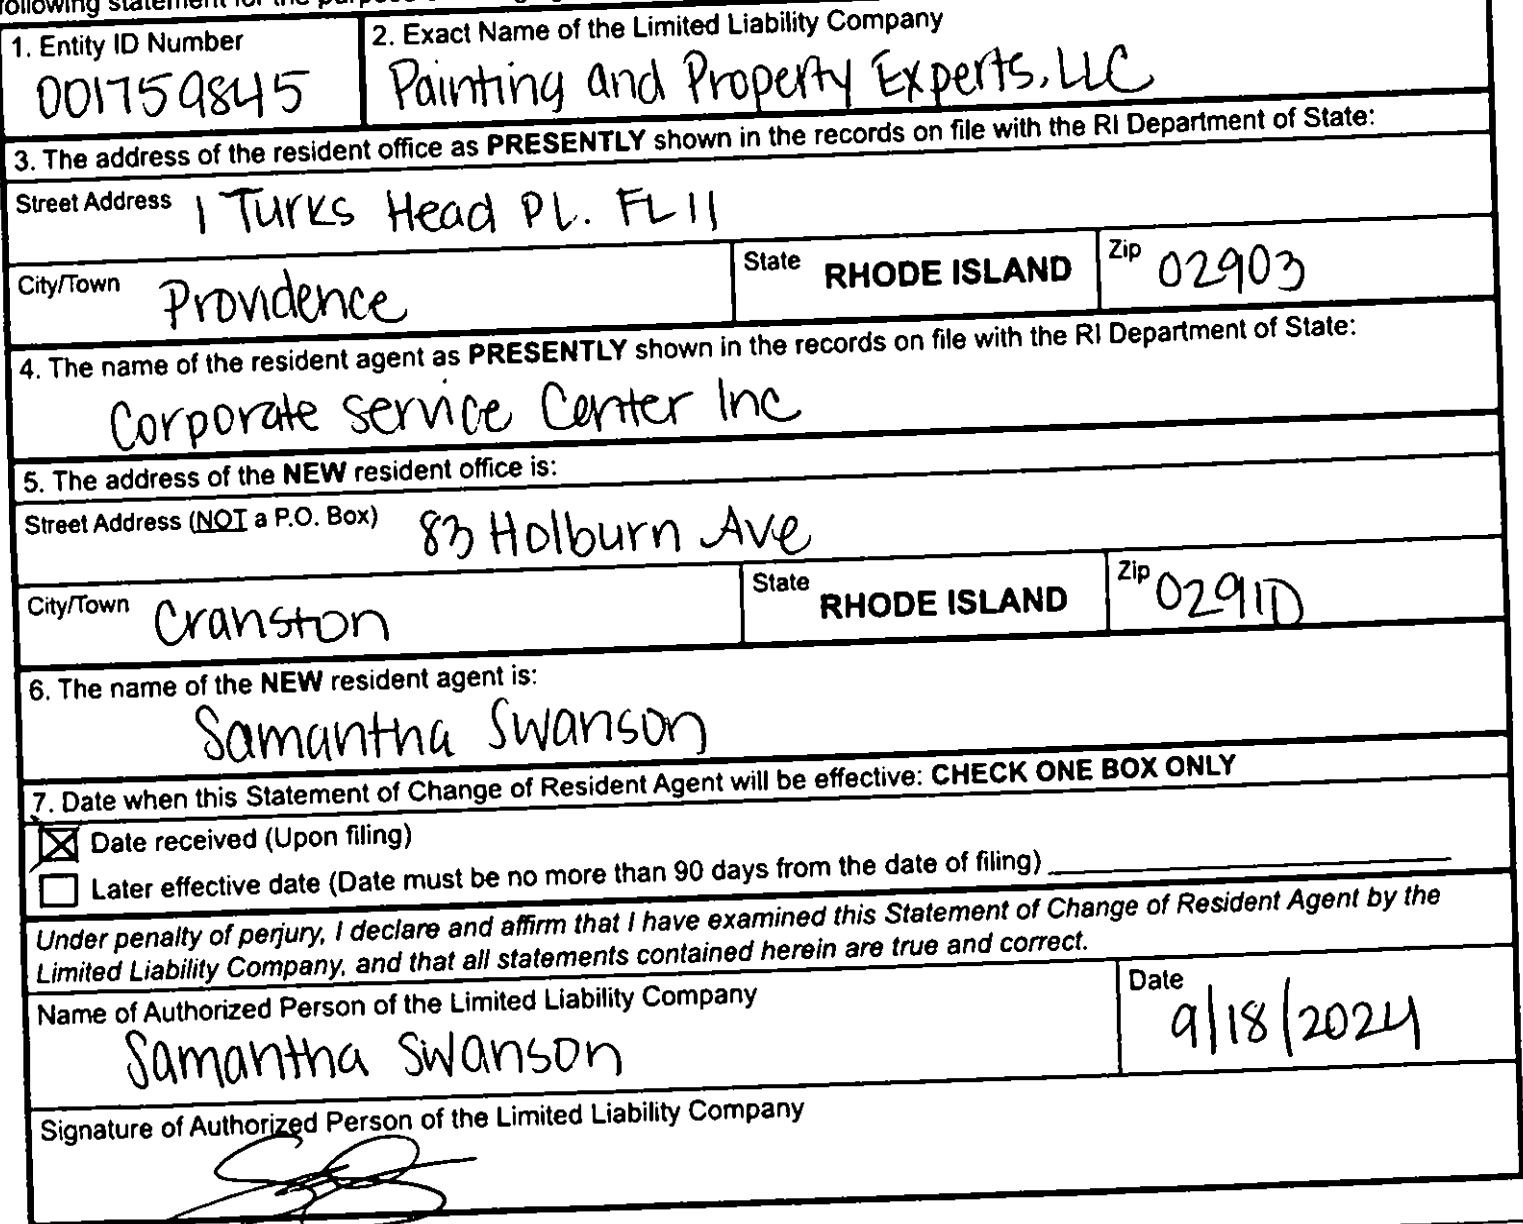 following statement for the purpose
1. Entity ID Number
001759845
2. Exact Name of the Limited Liability Company
Painting and Property Experts, LLC
3. The address of the resident office as PRESENTLY shown in the records on file with the RI Department of State:
Street Address 1 Turks Head PL. FL 11
City/Town Providence
State RHODE ISLAND
Zip 02903
4. The name of the resident agent as PRESENTLY shown in the records on file with the RI Department of State:
Corporate Service Center Inc
5. The address of the NEW resident office is:
Street Address (NOT a P.O. Box) 83 Holburn Ave
City/Town Cranston
State RHODE ISLAND
Zip 02910
6. The name of the NEW resident agent is:
Samantha Swanson
7. Date when this Statement of Change of Resident Agent will be effective: CHECK ONE BOX ONLY
☒ Date received (Upon filing)
☐ Later effective date (Date must be no more than 90 days from the date of filing)
Under penalty of perjury, I declare and affirm that I have examined this Statement of Change of Resident Agent by the
Limited Liability Company, and that all statements contained herein are true and correct.
Name of Authorized Person of the Limited Liability Company
Samantha Swanson
Date
9/18/2024
Signature of Authorized Person of the Limited Liability Company